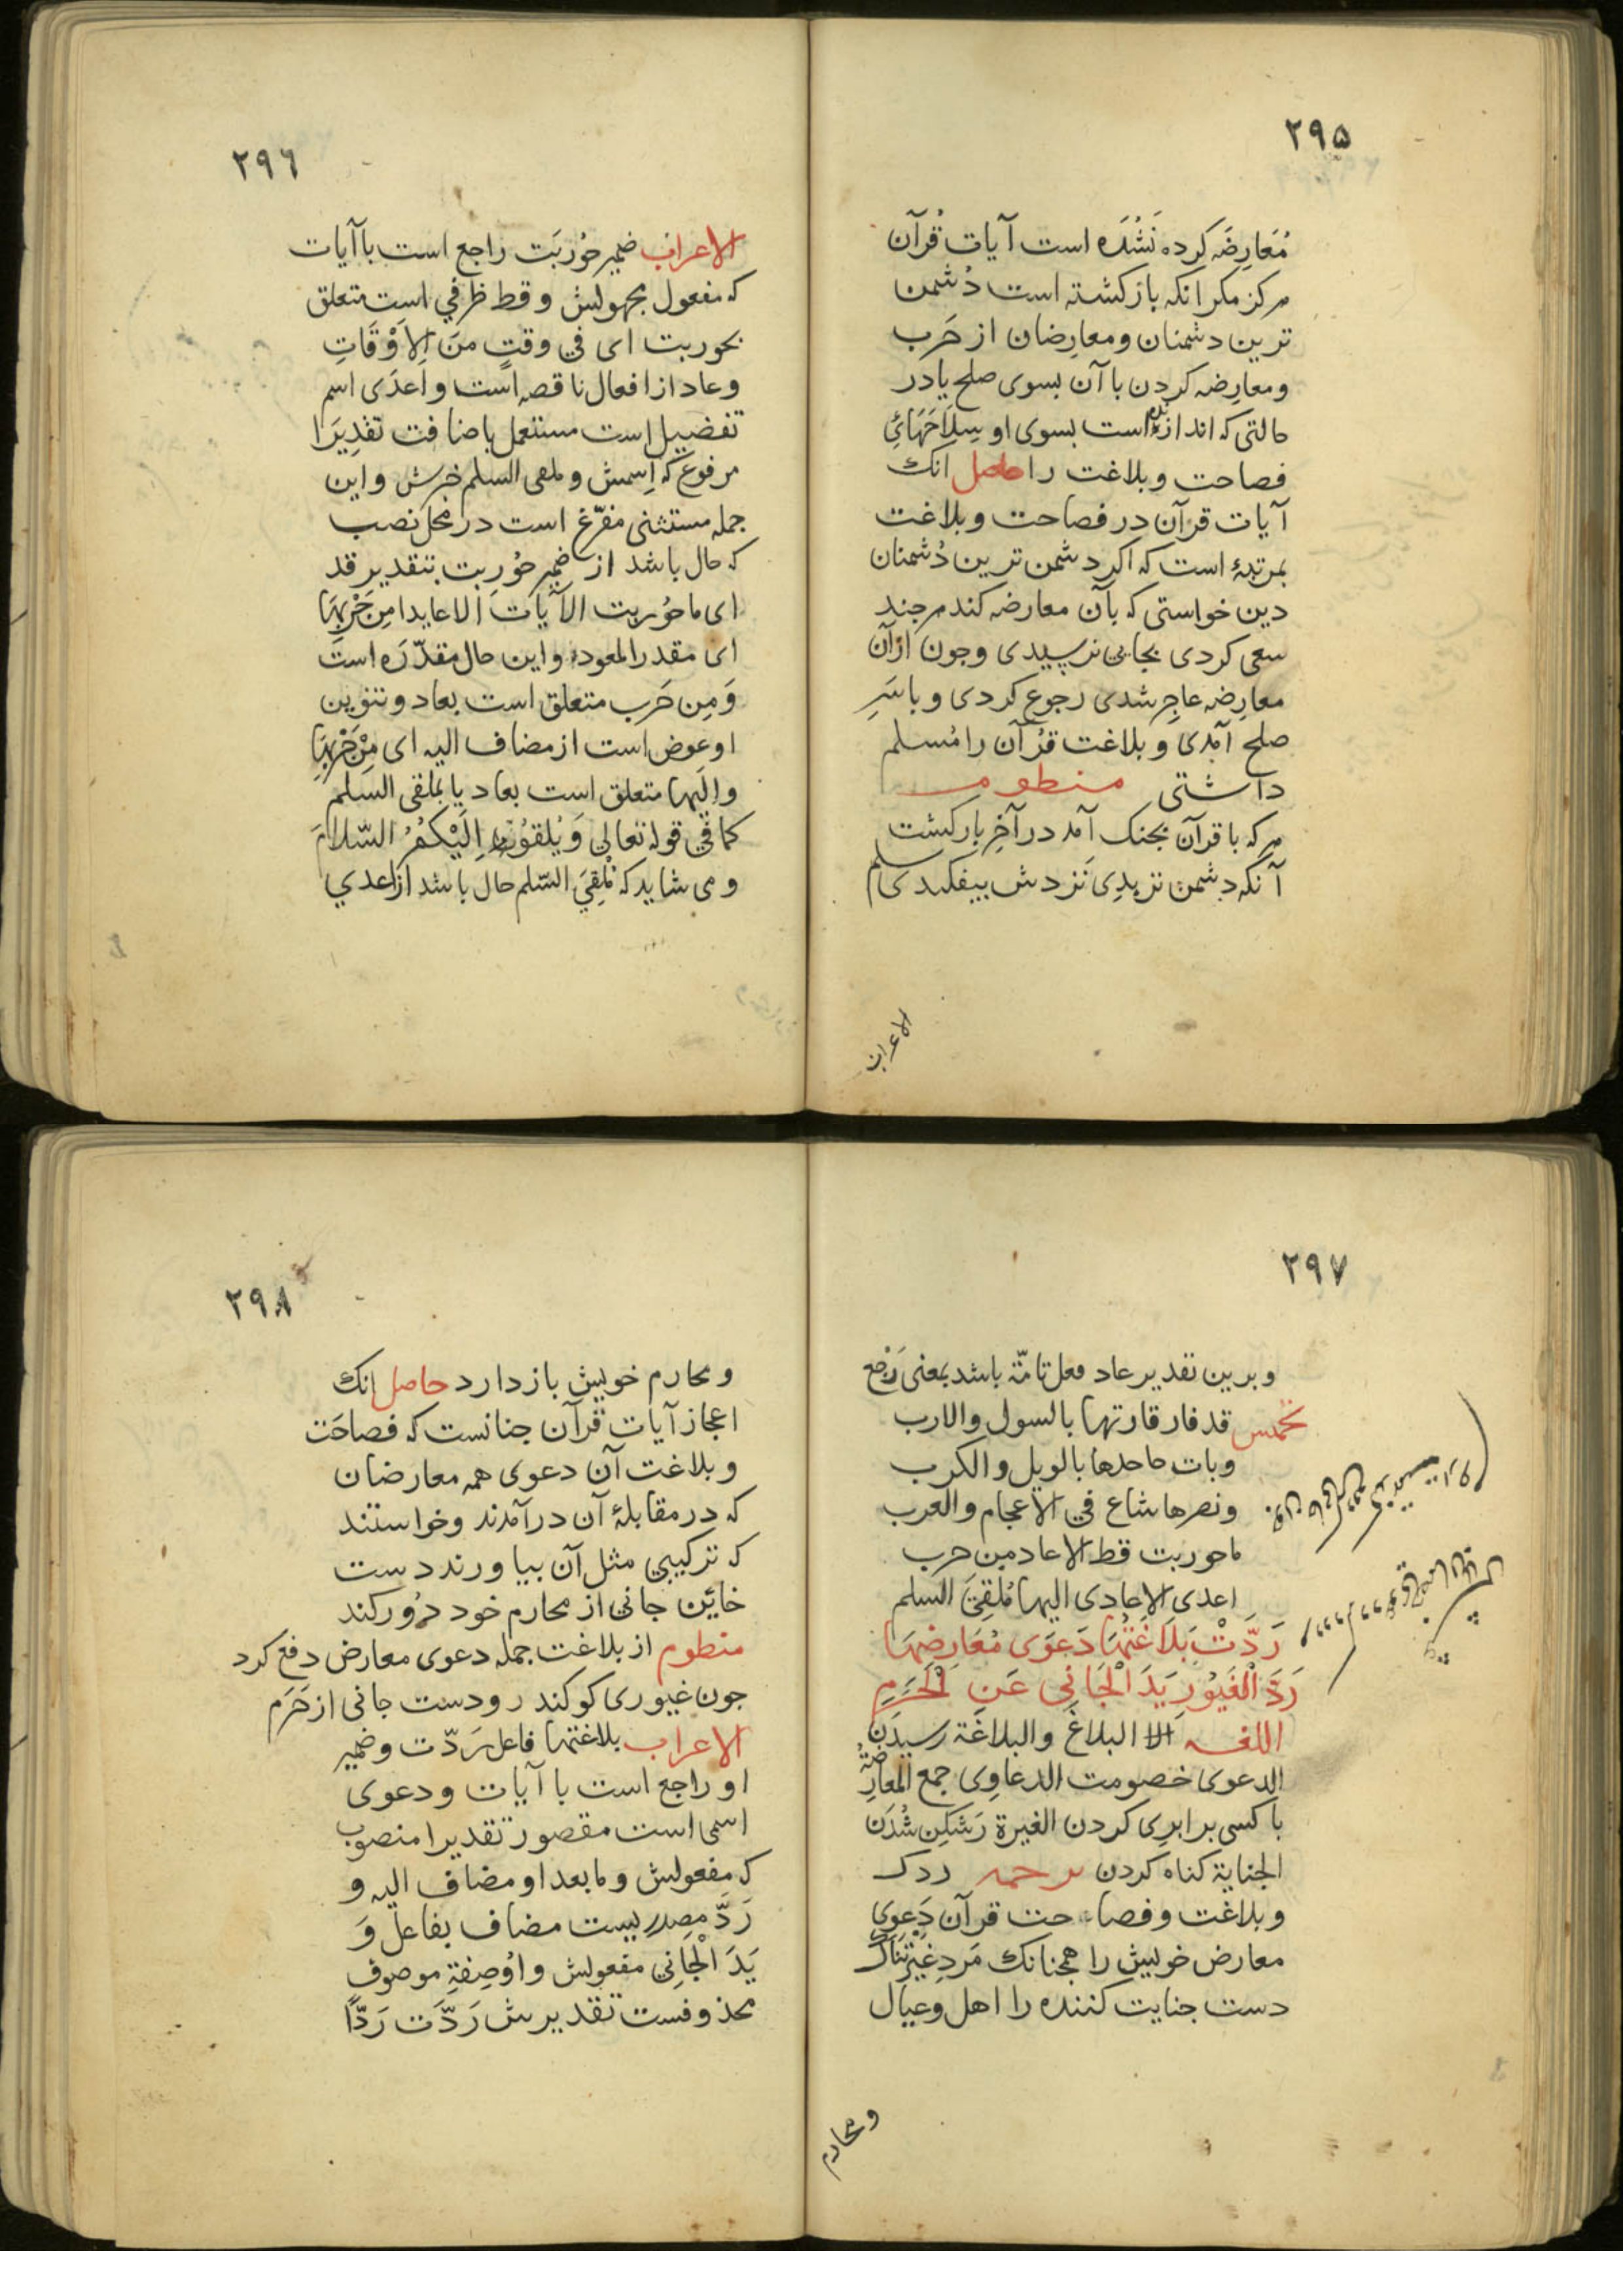 ۲۹۵
مُعَارِضَه کرده نَشُدَه است آیات قُرآن
هرکز مکر انکه بازکشته است دُشمن
ترین دشمنان ومعارِضان از حَرب
ومعارِضه کردن باآن بسوی صلح یادر
حالتی که اندازنده است بسوی او سِلَاحَهَائِ
فصاحت وبلاغت را حاصل انک
آیات قرآن در فصاحت وبلاغت
بمرتبهٔ است که اکر دشمن ترین دُشمنان
دین خواستی که بآن معارضه کند هرجند
سعی کردی بجایی نرسیدی وجون ازآن
معارِضه عاجِز شدی رجوع کردی وباسَرِ
صلح آمدی و بلاغت قُرآن را مُسلم
داشتی منظوم
هرکه با قرآن بجنک آمد در آخِر بازکشت
آنکه دشمن تر بدِی نَزدش بیفکندی سلم
الاعراب
۲۹٦
الاعراب ضمیر حُورِبَت راجع است باآیات
که مفعول مجهولش وقط ظرفي است متعلق
بحوربت ای في وقتٍ مِنَ الاَوْقَاتِ
وعاد از افعال ناقصه است واَعدَی اسم
تفضیل است مستعمل باضافت تقدِیَرا
مرفوع که اِسمش وملقی السلم خبرش واین
جمله مستثنی مفرّغ است در محل نصب
که حال باشد از ضمیر حُورِبت بتقدیر قد
ای ماحُوربت الآیَات الاعایدا مِن حَرْبِهَا
ای مقدر المعود واین حال مقدّرَه است
وَمِن حَرب متعلق است بعاد وتنوین
اوعوض است از مضاف الیه ای مِنْ حَرْبِهَا
واِلَیها متعلق است بعاد یا بملقی السلم
کمافي قوله تعالی وَیُلقُوا اِلَیْکُمُ السّلامَ
ومی شاید که مُلْقِيَ السّلم حال باشد از اعدي
۲۹۷
وبرین تقدیر عاد فعل تامّة باشد بمعنی رَجَع
تخمیس قد فاز قارئها بالسول والارب
وبات جاحدها بالویل والکرب
ونصرها شاع في الاعجام والعرب
ماحوربت قط الاعاد من حرب
اعدی الاعادی الیها مُلقِيَ السلم
رَدَّتْ بَلَاغَتُهَا دَعوَی مُعَارِضِهَا
رَدَّ الْغَیُورِ یَدَ الْجَانِی عَنِ الْحَرَمِ
اللغه البلاغ والبلاغَة رسیدَن
الدعوی خصومت الدعاوِی جمع المعارِضَةُ
باکسی برابرِی کردن الغیرة رَشکِن شُدَن
الجنایة کناه کردن ترجمه ردک
وبلاغت وفصاحت قرآن دَعوِی
معارض خویش را همجنانک مَردِ غیرتناک
دست جنایت کننده را اهل وعیال
ومحارم
۲۹۸
ومحارم خویش بازدارد حاصل انک
اعجاز آیات قرآن جنانست که فصاحَت
وبلاغت آن دعوی همه معارضان
که در مقابلهٔ آن درآمدند وخواستند
که ترکیبي مثل آن بیاورند دست
خائن جاني از محارم خود دُورکند
منظوم از بلاغت جمله دعوی معارض دفع کرد
جون غیوری کوکند رودست جانی از حَرَم
الاعراب بلاغتها فاعل رَدّت وضمیر
او راجع است با آیات ودعوی
اسمی است مقصور تقدیرا منصوب
که مفعولش ومابعد او مضاف الیه و
رَدَّ مصدریست مضاف بفاعل وَ
یَدَ الْجَانِي مفعولش واوُصِفةِ موصوف
محذوفست تقدیرش رَدَّت رَدًّا